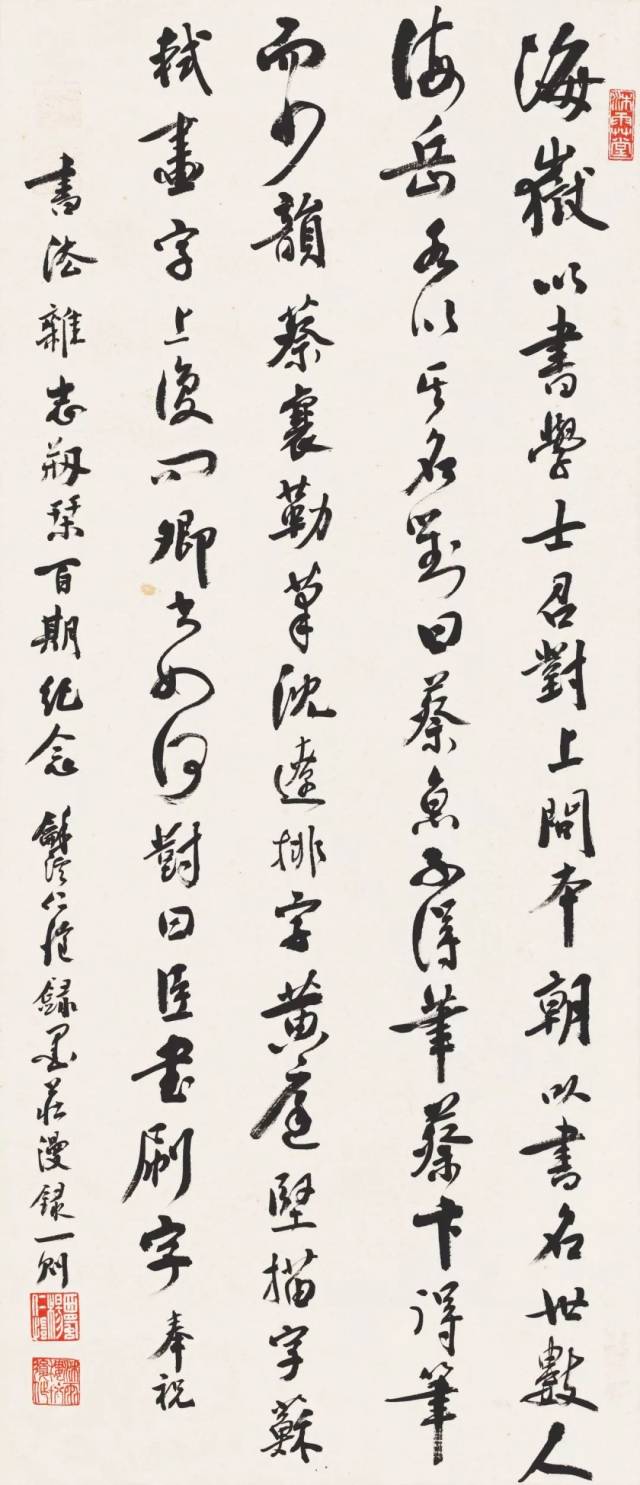 沐雨堂
海嶽以書學士召對上問本朝以書名世數人
海岳各以其名對曰蔡京不得筆蔡卞得筆
而少韻蔡襄勒沈遼排字黄庭堅描字蘇
軾畫字上復问卿书如何對曰臣書刷字奉祝
書法雜志剏栞百期紀念龢溪仁愷録墨莊漫録一则